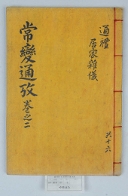 通禮
居家雜儀
常變通攷 卷之二
共十六